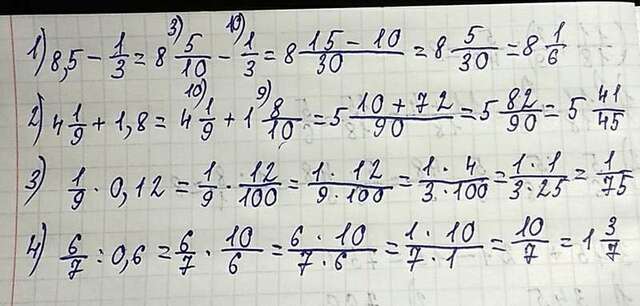 1) 8,5 - 1/3 = 8 ³⁾5/10 - ¹⁰⁾1/3 = 8 (15 - 10)/30 = 8 5/30 = 8 1/6
2) 4 1/9 + 1,8 = 4 ¹⁰⁾1/9 + 1 ⁹⁾8/10 = 5 (10 + 72)/90 = 5 82/90 = 5 41/45
3) 1/9 · 0,12 = 1/9 · 12/100 = (1 · 12)/(9 · 100) = (1 · 4)/(3 · 100) = (1 · 1)/(3 · 25) = 1/75
4) 6/7 : 0,6 = 6/7 · 10/6 = (6 · 10)/(7 · 6) = (1 · 10)/(7 · 1) = 10/7 = 1 3/7